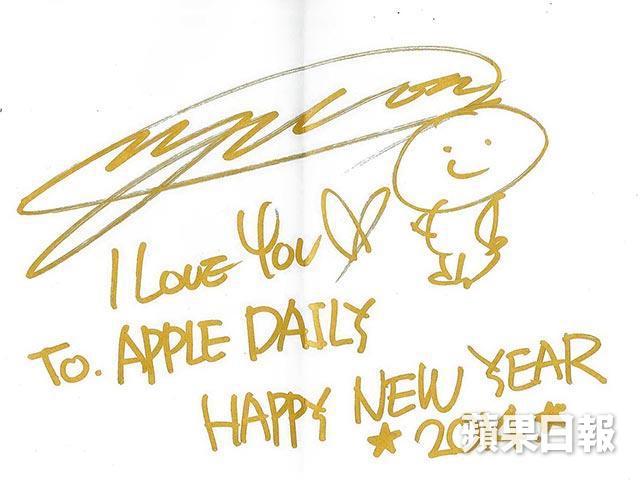 I LOVE YOU
TO. APPLE DAILY
HAPPY NEW YEAR
蘋果日報